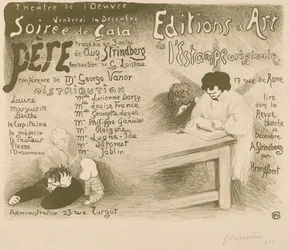 Théatre de l'Oeuvre
Vendredi 14 Décembre
Soirée de Gala
PÈRE
tragédie en 3 actes
de Aug. Strindberg
traduction de G. Loiseau
Conférence de Mr George Vanor
DISTRIBUTION
Laura Mme Lucienne Dorsy
Marguerite Mme Louise France
Berthe Mme Georgette Loyer
le Capitaine Mr Philippe Garnier
le médecin
le Pasteur Mr Lugné-Poe
L'Ordonnance Mr Jablin
Administration 23 rue Turgot
Editions d'Art
de l'Estampe originale
17 rue de Rome
lire
dans la
Revue
blanche
de
Décembre
A. Strindberg
par
Henri Albert